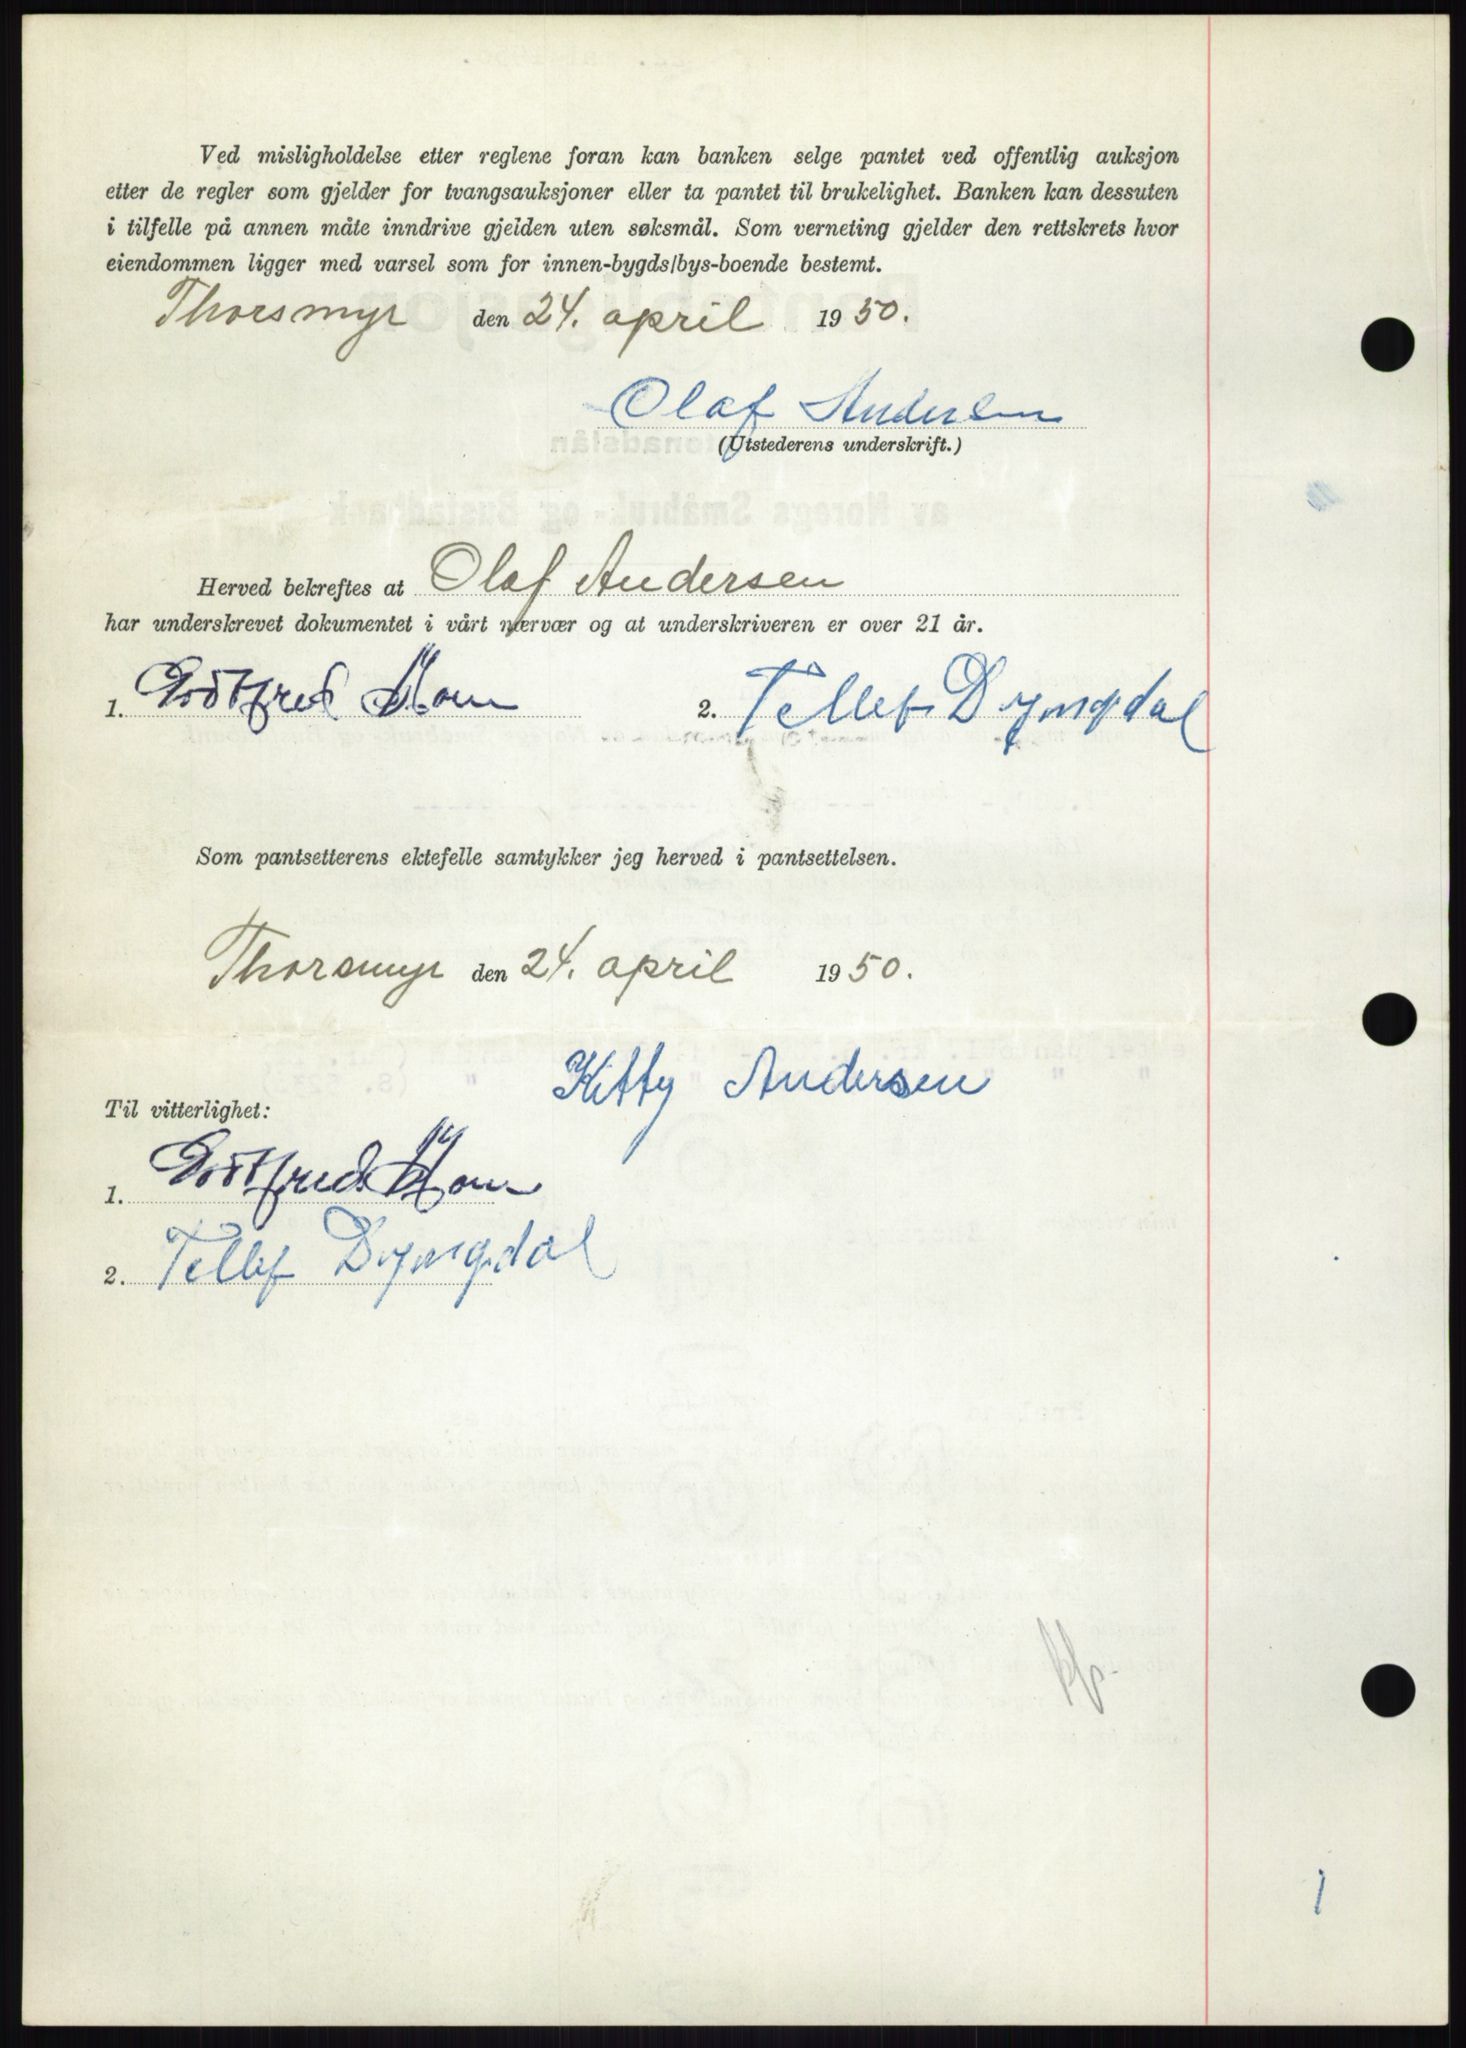 Ved misligholdelse etter reglene foran kan banken selge pantet ved offentlig auksjon
etter de regler som gjelder for tvangsauksjoner eller ta pantet til brukelighet. Banken kan dessuten
i tilfelle på annen måte inndrive gjelden uten søksmål. Som verneting gjelder den rettskrets hvor
eiendommen ligger med varsel som for innen-bygds/bys-boende bestemt.
Thorsmyr den 24. april 1950.
Olaf Andersen
(Utstederens underskrift.)
Herved bekreftes at Olaf Andersen
har underskrevet dokumentet i vårt nærvær og at underskriveren er over 21 år.
1. Godtfred 2. Tellef Dyngdal
Som pantsetterens ektefelle samtykker jeg herved i pantsettelsen.
Thorsmyr den 24. april 1950.
Kitty Andersen
Til vitterlighet:
1. Godtfred
2. Tellef Dyngdal
1